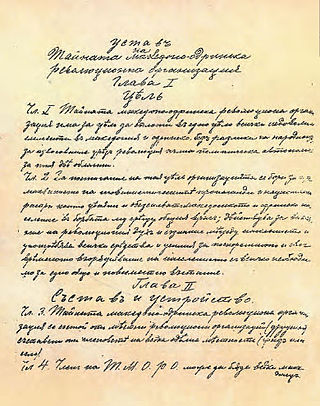 Уставъ
на
Тайната Македоно-Одринска
революционна организация
Глава I
Цѣль
Чл. I Тайната македоно-одринска революционна орга-
низация има за цѣль да сплоти въ едно цѣло всички недоволни
елементи въ Македония и Одринско, безъ разлика на народность
за извоюване чрѣзъ революция пълна политическа автономия
за тия двѣ области.
Чл. 2. За постигане на тая цѣль организацията се бори за
на шовинистическите пропаганди и национални
распри които цѣпятъ и обезсилватъ македонското и одринско на-
селение въ борбата му срѣщу общия врагъ; дѣйствува за
не на революционенъ духъ и съзнание между населението и
употрѣбява всички срѣдства и усилия за
въорѫжаване на населението съ всичко необходи-
мо за едно общо и повсемѣстно възстание.
Глава II
Съставъ и устройство.
Чл. 3. Тайната македоно-одринска революционна орга-
низация се състои отъ мѣстни революционни организации (дружини)
съставени отъ членовете на всѣка мѣстность (градъ или
село)
Чл. 4. Членъ на Т.М.О.Р.О. може да бѫде всѣки маке-